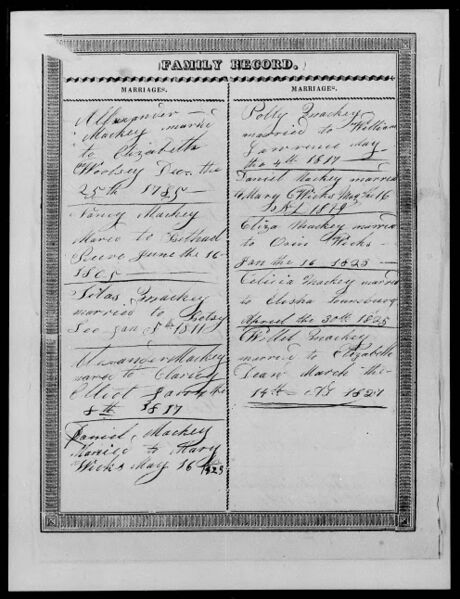 FAMILY RECORD.
MARRIAGES.
Allexander
Mackey married
to Elizabeth
Woolsey Dec. the
25th 1785
Nancy Mackey
Mared to
June the 16
1805
Silas Mackey
married to Betsy
Lee Jan 5th 1811
Alexander Mackey
mared to
Elliot the
8th 1817
Daniel Mackey
Maried to Mary
Wicks May 16 1823
MARRIAGES.
Polly Mackey
married to William
Lawrence May
the 4th 1817
Daniel Mackey married
Mary Wicks 16
Eliza Mackey married
to Wicks
Jan the 16 1823
Mackey married
to Elisha Lounsbury
Apreel the 30th 1825
Willet Mackey
married to Elizabeth
Dean March the
14th 1827